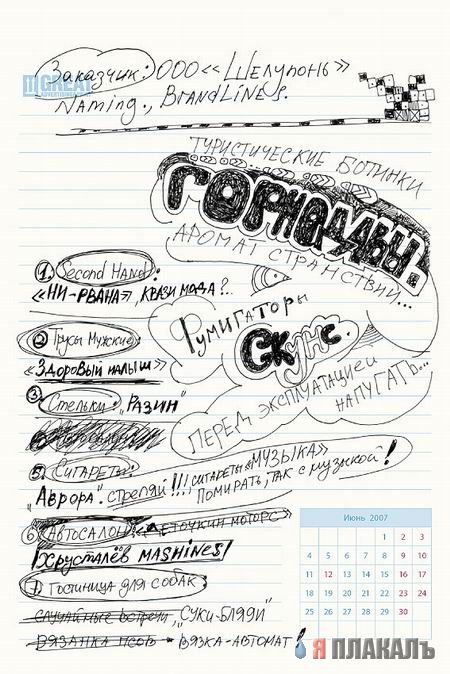 Заказчик: ООО «Шелупонь»
Naming., BrandLines.
MGREAT
ТУРИСТИЧЕСКИЕ БОТИНКИ
ГОРНАДЫ.
АРОМАТ СТРАНСТВИЙ...
1. Second Hand:
«НИ-РВАНА», КВАЗИ МОДА?..
Фумигаторы
СКУНС.
ПЕРЕД ЭКСПЛУАТАЦИЕЙ
НАПУГАТЬ...
2. Трусы Мужские:
«ЗДОРОВЫЙ МАЛЫШ»
3. Стельки: „РАЗИН"
5. Сигареты:
„АВРОРА". СТРЕЛЯЙ!!!
СИГАРЕТЫ «МУЗЫКА»
ПОМИРАТЬ, ТАК С МУЗЫКОЙ!
6. АВТОСАЛОН «ЛЕТОЧКИН МОТОРС»
ХРУСТАЛЁВ MASHINES!
7. ГОСТИНИЦА ДЛЯ СОБАК
СЛУЧАЙНЫЕ ВСТРЕЧИ „СУКИ-БЛЯДИ"
ВЯЗАНКА ПСОВ ВЯЗКА-АВТОМАТ!
Июнь 2007
1 2 3
4 5 6 7 8 9 10
11 12 13 14 15 16 17
18 19 20 21 22 23 24
25 26 27 28 29 30
Я ПЛАКАЛЪ